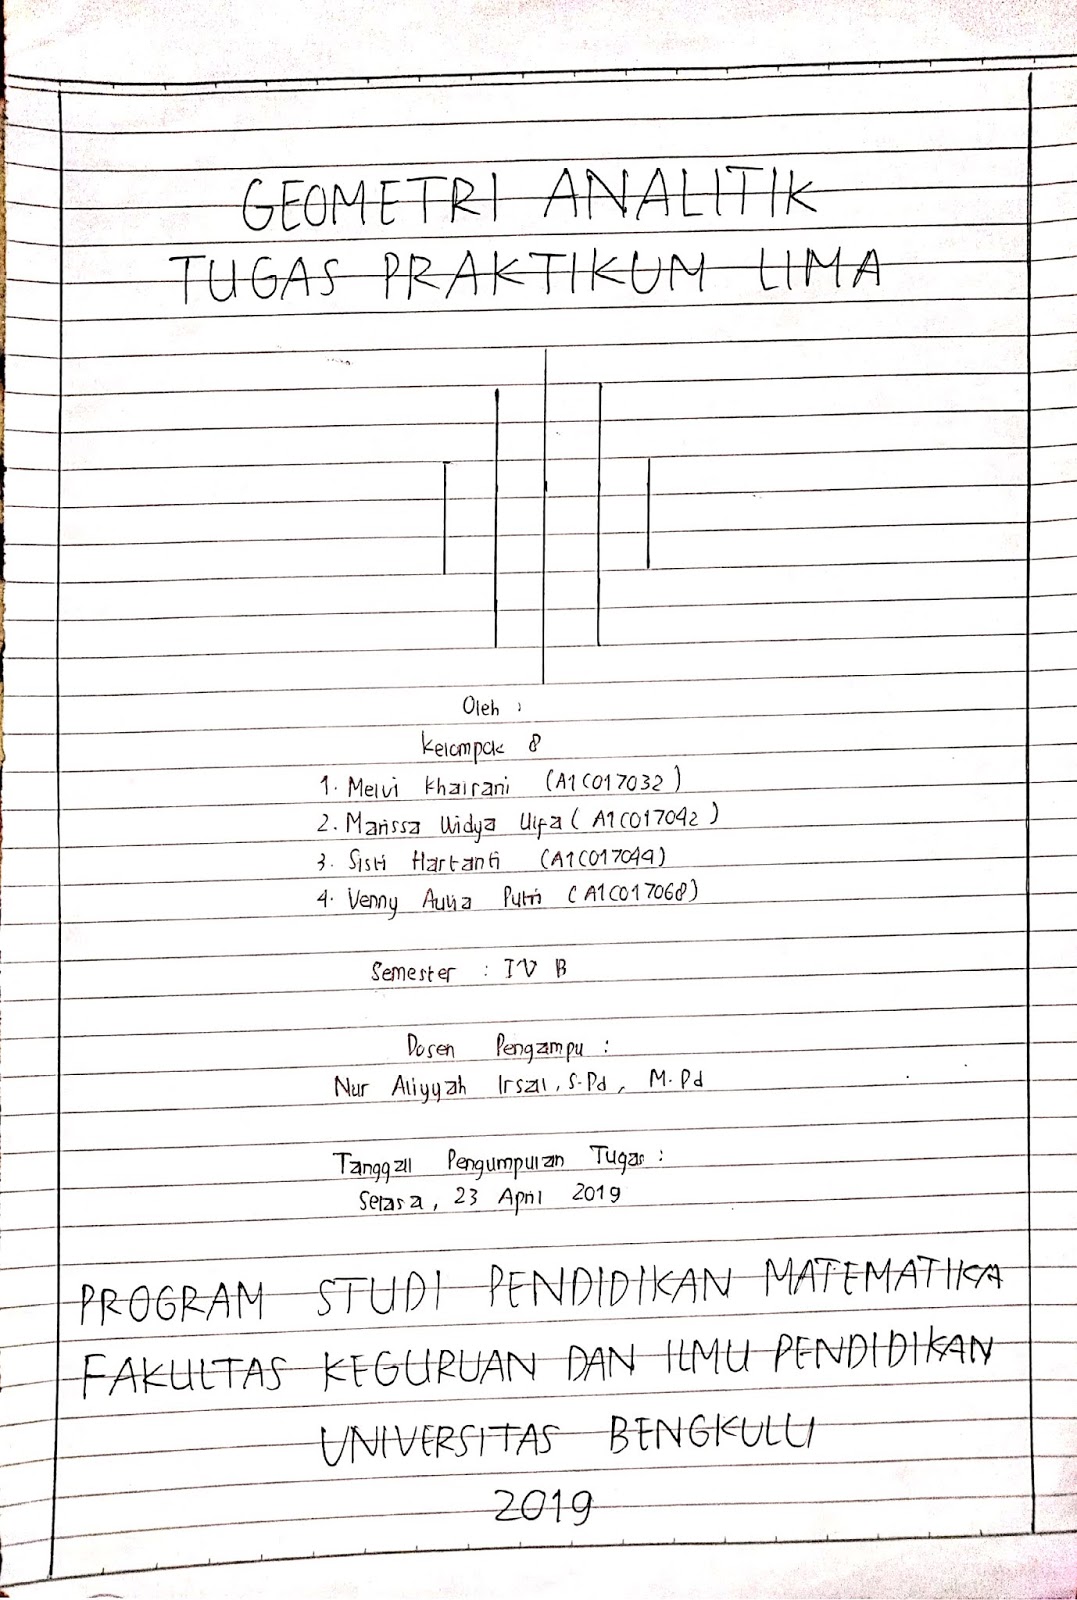 GEOMETRI ANALITIK
TUGAS PRAKTIKUM LIMA
Oleh :
Kelompok 8
1. Melvi Khairani (A1C017032)
2. Marissa Widya Ulfa (A1C017042)
3. Sisti Hartanti (A1C017044)
4. Venny Aulia Putri (A1C017068)
Semester : IV B
Dosen Pengampu :
Nur Aliyyah Irsal, S.Pd, M.Pd
Tanggall Pengumpulan Tugas :
Selasa, 23 April 2019
PROGRAM STUDI PENDIDIKAN MATEMATIKA
FAKULTAS KEGURUAN DAN ILMU PENDIDIKAN
UNIVERSITAS BENGKULU
2019